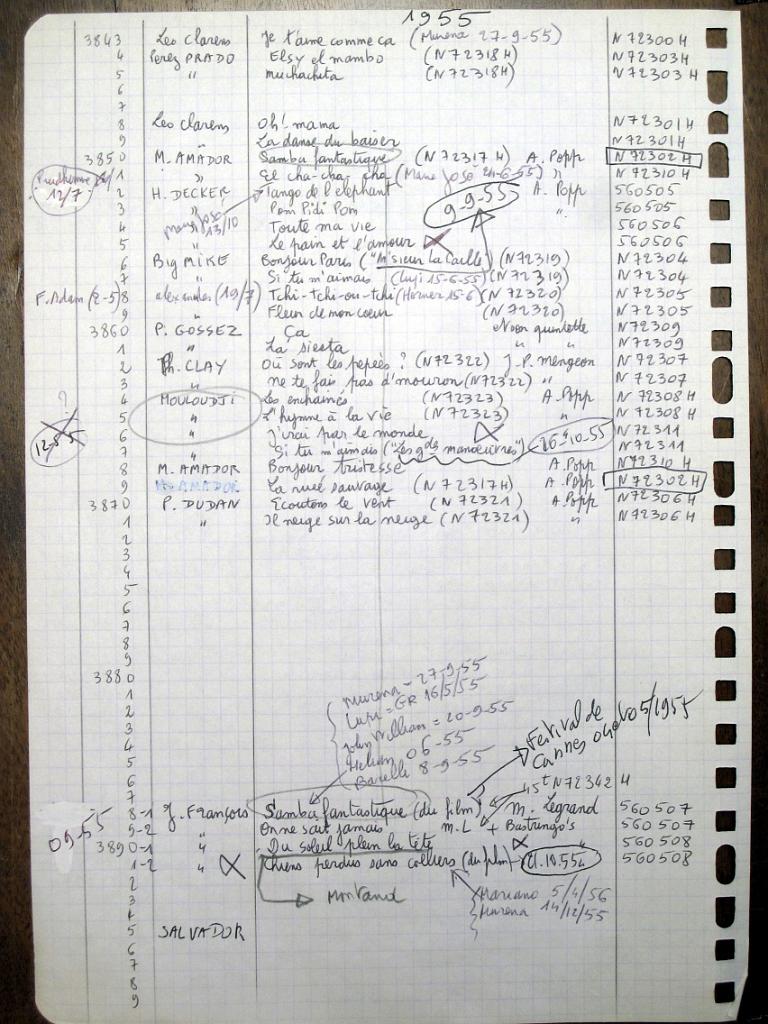 1955
3843 Les Clarens Je t'aime comme ca (Murena 27-9-55) N72300H
4 Perez PRADO Elsy el mambo (N72318H) N72303H
5 " muchachita (N72318H) N72303H
6
7
8 Les Clarens Oh! mama N72301H
9 " La danse du baiser N72301H
3850 M. AMADOR Samba fantastique (N72317H) A. Popp N72302H
1 " El cha-cha-cha (Maria José 21-6-55) " N72310H
12/7
2 H. DECKER Tango de l'elephant A. Popp 560505
3 " Pom Pidi Pom 9-9-55 " 560505
4 " Toute ma vie 560506
Maria José 13/10
5 " Le pain et l'amour 560506
6 Big MIKE Bonjour Paris ("M'sieur La Caille") (N72319) N72304
7 " Si tu m'aimais (Luji 15-6-55) (N72319) N72304
F. Adam (2-5) 8 alexander (19/7) Tchi-tchi-ou-tchi (Horner 15-6) (N72320) N72305
9 " Fleur de mon coeur (N72320) N72305
3860 P. GOSSEZ Ça Noon quintette N72309
1 " La siesta " " N72309
2 Ph. CLAY Où sont les pepées? (N72322) J.P. Mengeon N72307
3 " ne te fais pas d'mouron (N72322) " N72307
4 MOULOUDJI Les enchainés (N72323) A. Popp N72308H
?
5 " L'hymne à la vie (N72323) " N72308H
12-55
6 " J'irai par le monde N72311
7 " Si tu m'aimais ("Les gdes manoeuvres") 26-10-55 N72311
8 M. AMADOR Bonjour tristesse A. Popp N72310H
9 M. AMADOR La rueé sauvage (N72317H) A. Popp N72302H
3870 P. DUDAN Ecoutons le vent (N72321) A. Popp N72306H
1 " Il neige sur la neige (N72321) " N72306H
2
3
4
5
6
7
8
9
3880
1
2
3
4
5
6
7
Murena = 27-9-55
16/5/55
John William = 20-9-55
Helian 06-55
Barelli 8-9-55
Festival de Cannes 05/1955
45t N72342H
8-1 J. François Samba fantastique (du film) M. Legrand 560507
09-55
9-2 " On ne sait jamais M.L + Bastringo's 560507
3890-1 " Du soleil plein la tête " 560508
1-2 " Chiens perdus sans colliers (du film) 21.10.55 560508
2
3
Montand
Mariano 5/4/56
Murena 14/12/55
4
5 SALVADOR
6
7
8
9